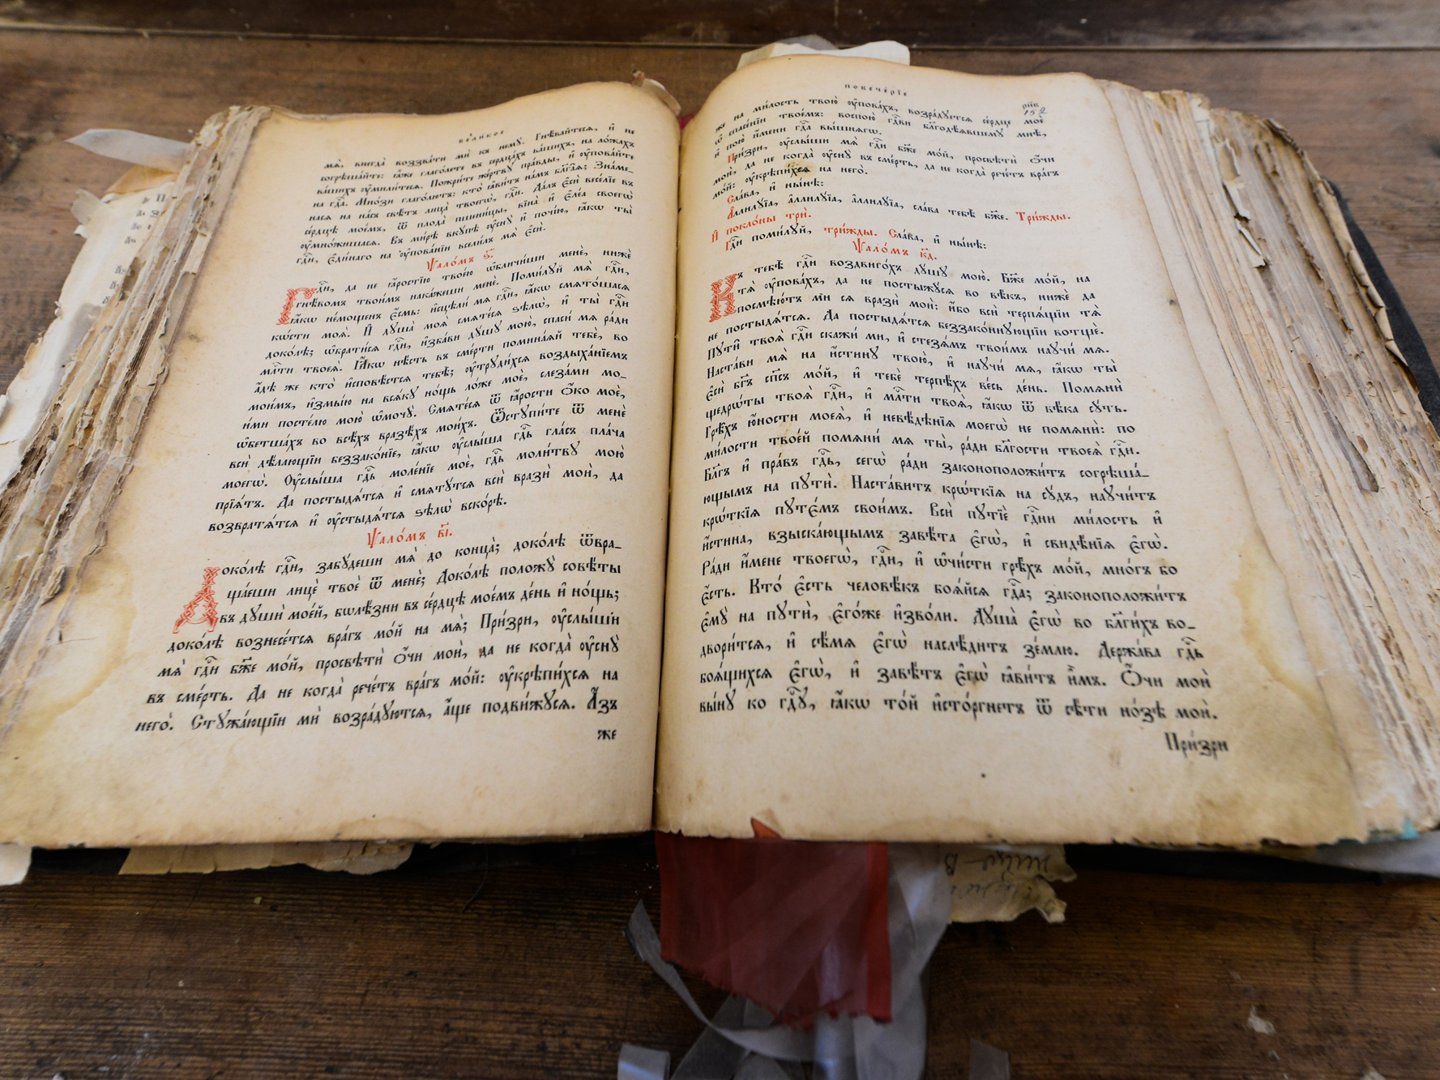 великое
мѧ̀, внегда̀ воззва́ти ми́ къ немꙋ̀. Гнѣ́вайтесѧ, и҆ не
согрѣша́йте: ꙗ҆̀же глаго́лете въ сердца́хъ ва́шихъ, на ло́жахъ
ва́шихъ ᲂу҆мили́тесѧ. Пожри́те же́ртвꙋ пра́вды, и҆ ᲂу҆пова́йте
на гдⷭ҇а. Мно́зи глаго́лютъ: кто̀ ꙗ҆ви́тъ на́мъ бл҃га̑ѧ; Зна́ме-
насѧ на на́съ свѣ́тъ лица̀ твоегѡ̀, гдⷭ҇и. Да́лъ є҆сѝ весе́лїе въ
се́рдцѣ мое́мъ, ѿ плода̀ пшени́цы, вїна̀ и҆ є҆ле́а своегѡ̀
ᲂу҆мно́жишасѧ. Въ ми́рѣ вкꙋ́пѣ ᲂу҆снꙋ̀ и҆ почі́ю, ꙗ҆́кѡ ты̀
гдⷭ҇и, є҆ди́наго на ᲂу҆пова́нїи всели́лъ мѧ̀ є҆сѝ.
Ѱало́мъ ѕ҃.
Гдⷭ҇и, да не ꙗ҆́ростїю твое́ю ѡ҆бличи́ши менѐ, нижѐ
гнѣ́вомъ твои́мъ нака́жеши менѐ. Поми́лꙋй мѧ̀ гдⷭ҇и,
ꙗ҆́кѡ не́мощенъ є҆́смь: и҆сцѣли́ мѧ гдⷭ҇и, ꙗ҆́кѡ смѧто́шасѧ
кѡ́сти моѧ̑. И҆ дꙋша̀ моѧ̀ смѧте́сѧ ѕѣлѡ̀, и҆ ты̀ гдⷭ҇и
доко́лѣ; ѡ҆брати́сѧ гдⷭ҇и, и҆зба́ви дꙋ́шꙋ мою̀, спаси́ мѧ ра́ди
млⷭ҇ти твоеѧ̀. Ꙗ҆́кѡ нѣ́сть въ сме́рти помина́ѧй тебѐ, во
а҆́дѣ же кто̀ и҆сповѣ́стсѧ тебѣ̀; ᲂу҆трꙋди́хсѧ воздыха́нїемъ
мои́мъ, и҆змы́ю на всѧ́кꙋ но́щь ло́же моѐ, слеза́ми мо-
и́ми посте́лю мою̀ ѡ҆мочꙋ̀. Смѧте́сѧ ѿ ꙗ҆́рости ѻ҆́ко моѐ,
ѡ҆бетша́хъ во всѣ́хъ вразѣ́хъ мои́хъ. Ѿстꙋпи́те ѿ менѐ
всѝ дѣ́лающїи беззако́нїе, ꙗ҆́кѡ ᲂу҆слы́ша гдⷭ҇ь гла́съ пла́ча
моегѡ̀. Оу҆слы́ша гдⷭ҇ь моле́нїе моѐ, гдⷭ҇ь моли́твꙋ мою̀
прїѧ́тъ. Да постыдѧ́тсѧ и҆ смѧтꙋ́тсѧ всѝ вразѝ моѝ, да
возвратѧ́тсѧ и҆ ᲂу҆стыдѧ́тсѧ ѕѣлѡ̀ вско́рѣ.
Ѱало́мъ в҃і.
Доко́лѣ гдⷭ҇и, забꙋ́деши мѧ̀ до конца̀; доко́лѣ ѿвра-
ща́еши лицѐ твоѐ ѿ менѐ; Доко́лѣ положꙋ̀ совѣ́ты
въ дꙋшѝ мое́й, бѡлѣ́зни въ се́рдцѣ мое́мъ де́нь и҆ но́щь;
доко́лѣ вознесе́тсѧ вра́гъ мо́й на мѧ̀; При́зри, ᲂу҆слы́ши
мѧ̀ гдⷭ҇и бж҃е мо́й, просвѣтѝ ѻ҆́чи моѝ, да не когда̀ ᲂу҆снꙋ̀
въ сме́рть. Да не когда̀ рече́тъ вра́гъ мо́й: ᲂу҆крѣпи́хсѧ на
него̀. Стꙋжа́ющїи мѝ возра́дꙋютсѧ, а҆́ще подви́жꙋсѧ. А҆́зъ
же
повече́рїе
рнв
152
же на ми́лость твою̀ ᲂу҆пова́хъ, возра́дꙋетсѧ се́рдце моѐ
ѡ҆ спасе́нїи твое́мъ: воспою̀ гдⷭ҇ви бл҃годѣ́ѧвшемꙋ мнѣ̀,
и҆ пою̀ и҆́мени гдⷭ҇а вы́шнѧгѡ.
При́зри, ᲂу҆слы́ши мѧ̀ гдⷭ҇и бж҃е мо́й, просвѣтѝ ѻ҆́чи
моѝ, да не когда̀ ᲂу҆снꙋ̀ въ сме́рть, да не когда̀ рече́тъ вра́гъ
мо́й: ᲂу҆крѣпи́хсѧ на него̀.
Сла́ва, и҆ ны́нѣ:
А҆ллилꙋ́їа, а҆ллилꙋ́їа, а҆ллилꙋ́їа, сла́ва тебѣ̀ бж҃е. Три́жды.
И҆ покло́ны трѝ.
Гдⷭ҇и поми́лꙋй, три́жды. Сла́ва, и҆ ны́нѣ:
Ѱало́мъ к҃д.
Къ тебѣ̀ гдⷭ҇и воздвиго́хъ дꙋ́шꙋ мою̀. Бж҃е мо́й, на
тѧ̀ ᲂу҆пова́хъ, да не постыжꙋ́сѧ во вѣ́къ, нижѐ да
посмѣю́тъ мѝ сѧ вразѝ моѝ: и҆́бо всѝ терпѧ́щїи тѧ̀
не постыдѧ́тсѧ. Да постыдѧ́тсѧ беззако́ннꙋющїи вотщѐ.
Пꙋти̑ твоѧ̑ гдⷭ҇и скажи́ ми, и҆ стезѧ́мъ твои̑мъ наꙋчи́ мѧ.
Наста́ви мѧ̀ на и҆́стинꙋ твою̀, и҆ наꙋчи́ мѧ, ꙗ҆́кѡ ты̀
є҆сѝ бг҃ъ сп҃съ мо́й, и҆ тебѐ терпѣ́хъ ве́сь де́нь. Помѧнѝ
щедрѡ́ты твоѧ̑ гдⷭ҇и, и҆ млⷭ҇ти твоѧ̑, ꙗ҆́кѡ ѿ вѣ́ка сꙋ́ть.
Грѣ̑хъ ю҆́ности моеѧ̀, и҆ невѣ́дѣнїѧ моегѡ̀ не помѧнѝ: по
ми́лости твое́й помѧни́ мѧ ты̀, ра́ди бл҃гости твоеѧ̀ гдⷭ҇и.
Бл҃гъ и҆ пра́въ гдⷭ҇ь, сегѡ̀ ра́ди законоположи́тъ согрѣша́-
ющымъ на пꙋтѝ. Наста́витъ крѡ́ткїѧ на сꙋ́дъ, наꙋчи́тъ
крѡ́ткїѧ пꙋтє́мъ свои̑мъ. Всѝ пꙋтїѐ гдⷭ҇ни ми́лость и҆
и҆́стина, взыска́ющымъ завѣ́та є҆гѡ̀, и҆ свидѣ̑нїѧ є҆гѡ̀.
Ра́ди и҆́мене твоегѡ̀, гдⷭ҇и, и҆ ѡ҆чи́сти грѣ́хъ мо́й, мно́гъ бо
є҆́сть. Кто̀ є҆́сть человѣ́къ боѧ́йсѧ гдⷭ҇а; законоположи́тъ
є҆мꙋ̀ на пꙋтѝ, є҆го́же и҆зво́ли. Дꙋша̀ є҆гѡ̀ во бл҃ги́хъ во-
двори́тсѧ, и҆ сѣ́мѧ є҆гѡ̀ наслѣ́дитъ зе́млю. Держа́ва гдⷭ҇ь
боѧ́щихсѧ є҆гѡ̀, и҆ завѣ́тъ є҆гѡ̀ ꙗ҆ви́тъ и҆̀мъ. Ѻ҆́чи моѝ
вы́нꙋ ко гдⷭ҇ꙋ, ꙗ҆́кѡ то́й и҆сто́ргнетъ ѿ сѣ́ти но́зѣ моѝ.
При́зри